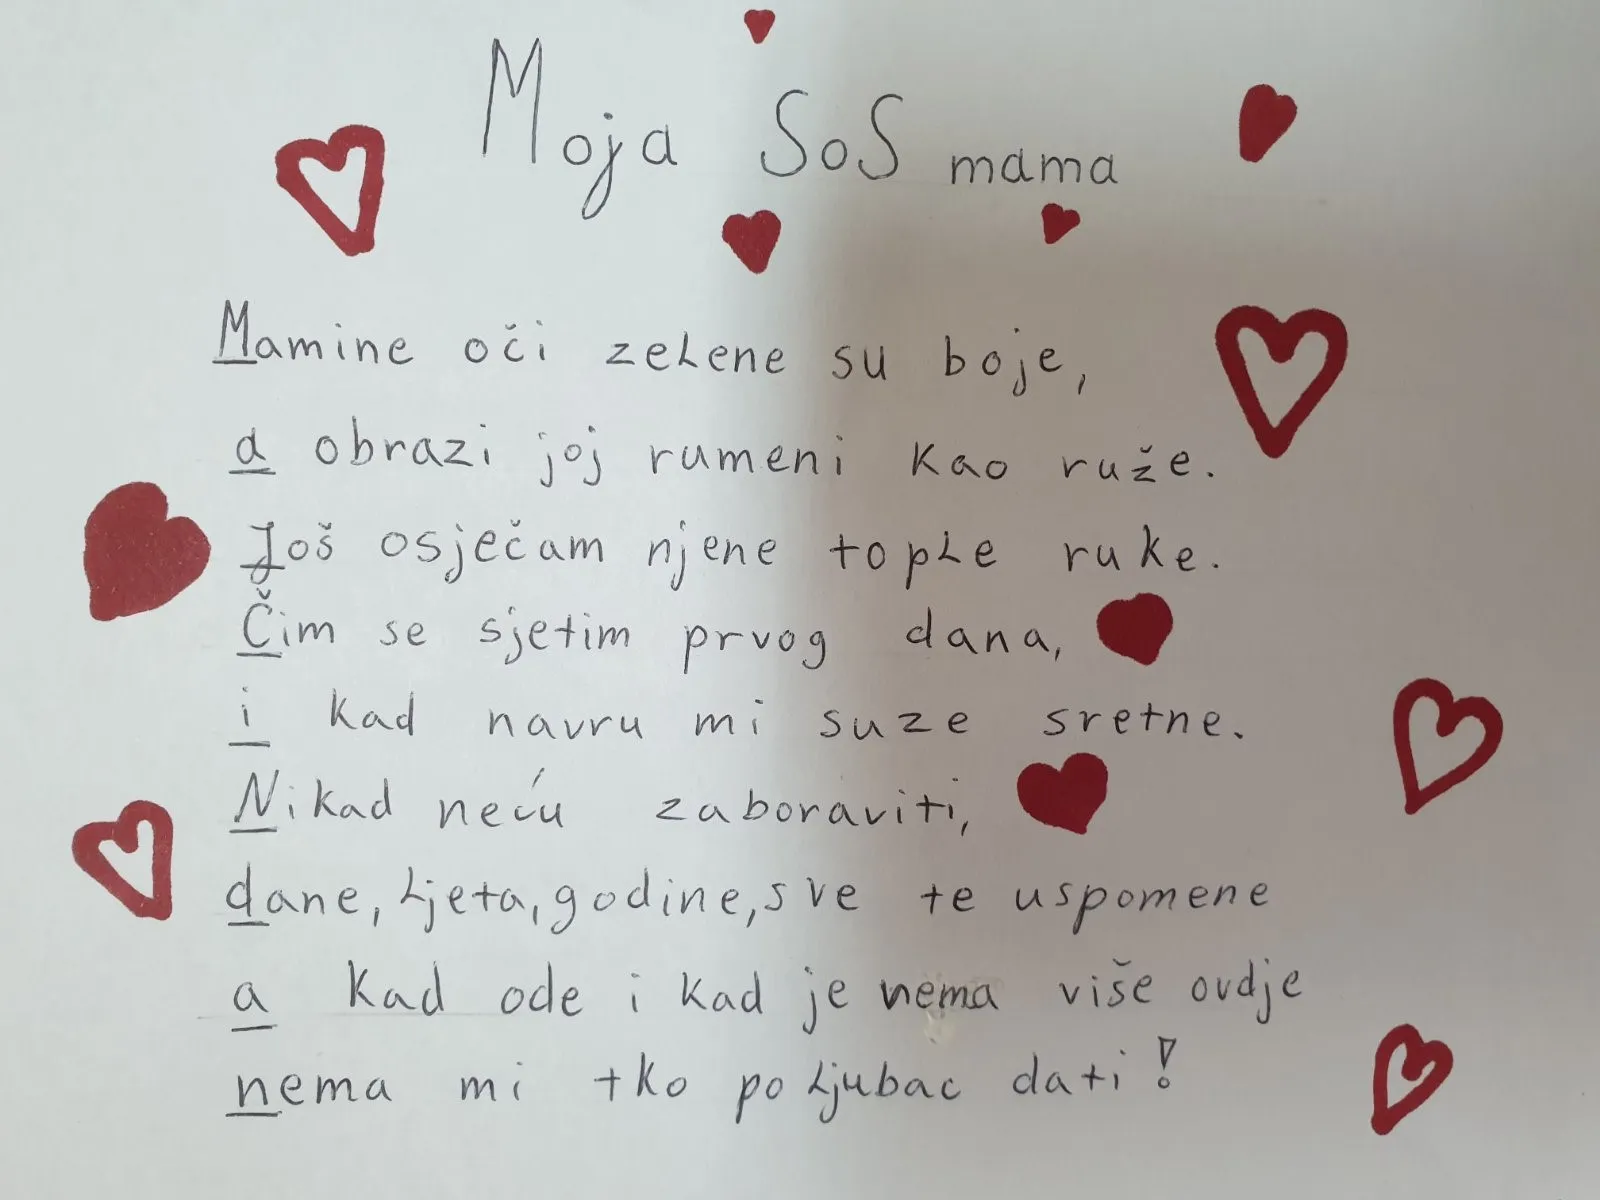 Moja SoS mama
Mamine oči zelene su boje,
a obrazi joj rumeni kao ruže.
Još osječam njene tople ruke.
Čim se sjetim prvog dana,
i kad navru mi suze sretne.
Nikad neću zaboraviti,
dane, ljeta, godine, sve te uspomene
a kad ode i kad je nema više ovdje
nema mi tko poljubac dati!